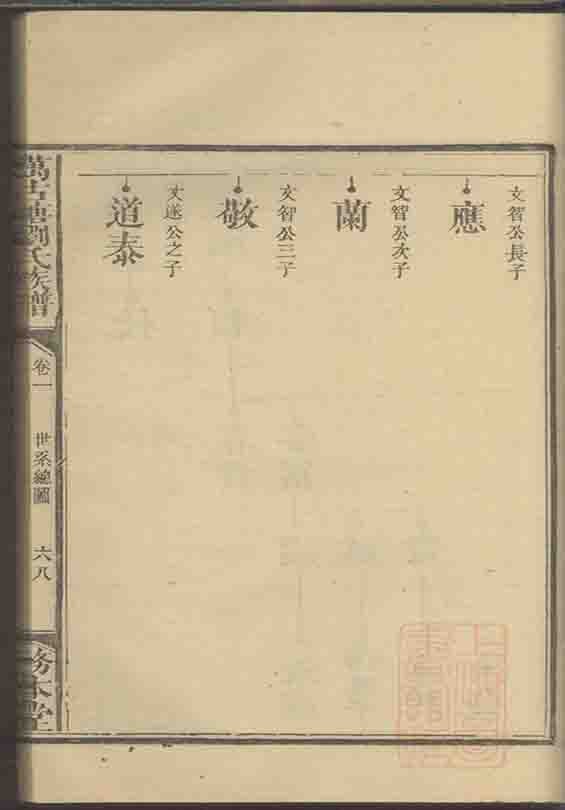 文智公長子
應
文智公次子
蘭
文智公三子
敬
文遂公之子
道泰
萬古塘劉氏族譜
卷一
世系總圖
六八
務本堂